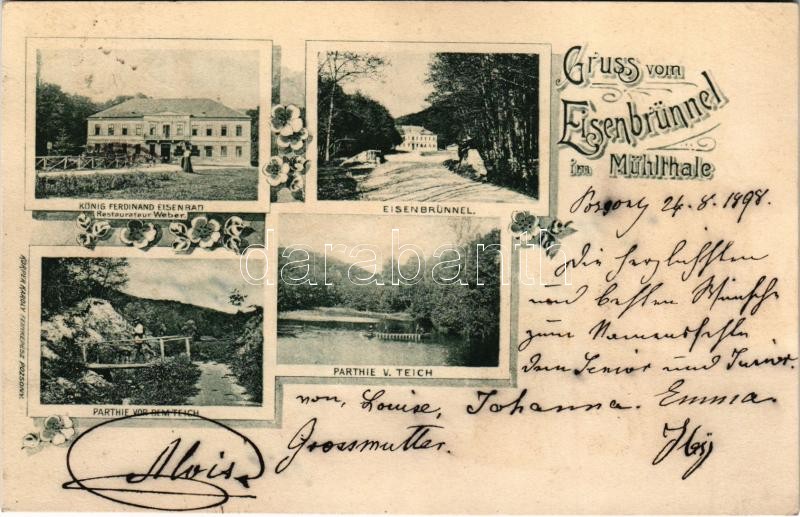 Gruss vom
Eisenbrünnel
im Mühlthale
KÖNIG FERDINAND EISENBAD
Restaurateur Weber.
EISENBRÜNNEL.
PARTHIE VOR DEM TEICH
PARTHIE V. TEICH
darabanth
Pozsony 24.8.1898.
Die herzlichsten
und besten Wünsche
zum Namensfeste
dem Senior und Junior.
von, Louise, Johanna. Emma.
Grossmutter.
Alois